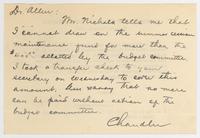 Dr. Allen:
Mr. Nichols tells me that
I cannot draw on the summer
maintenance grant for more than the
allotted by the budget committee.
I took a transfer check to your
secretary on Wednesday to cover this
amount, thus saying that no more
can be paid without action of the
budget committee.
Chandler